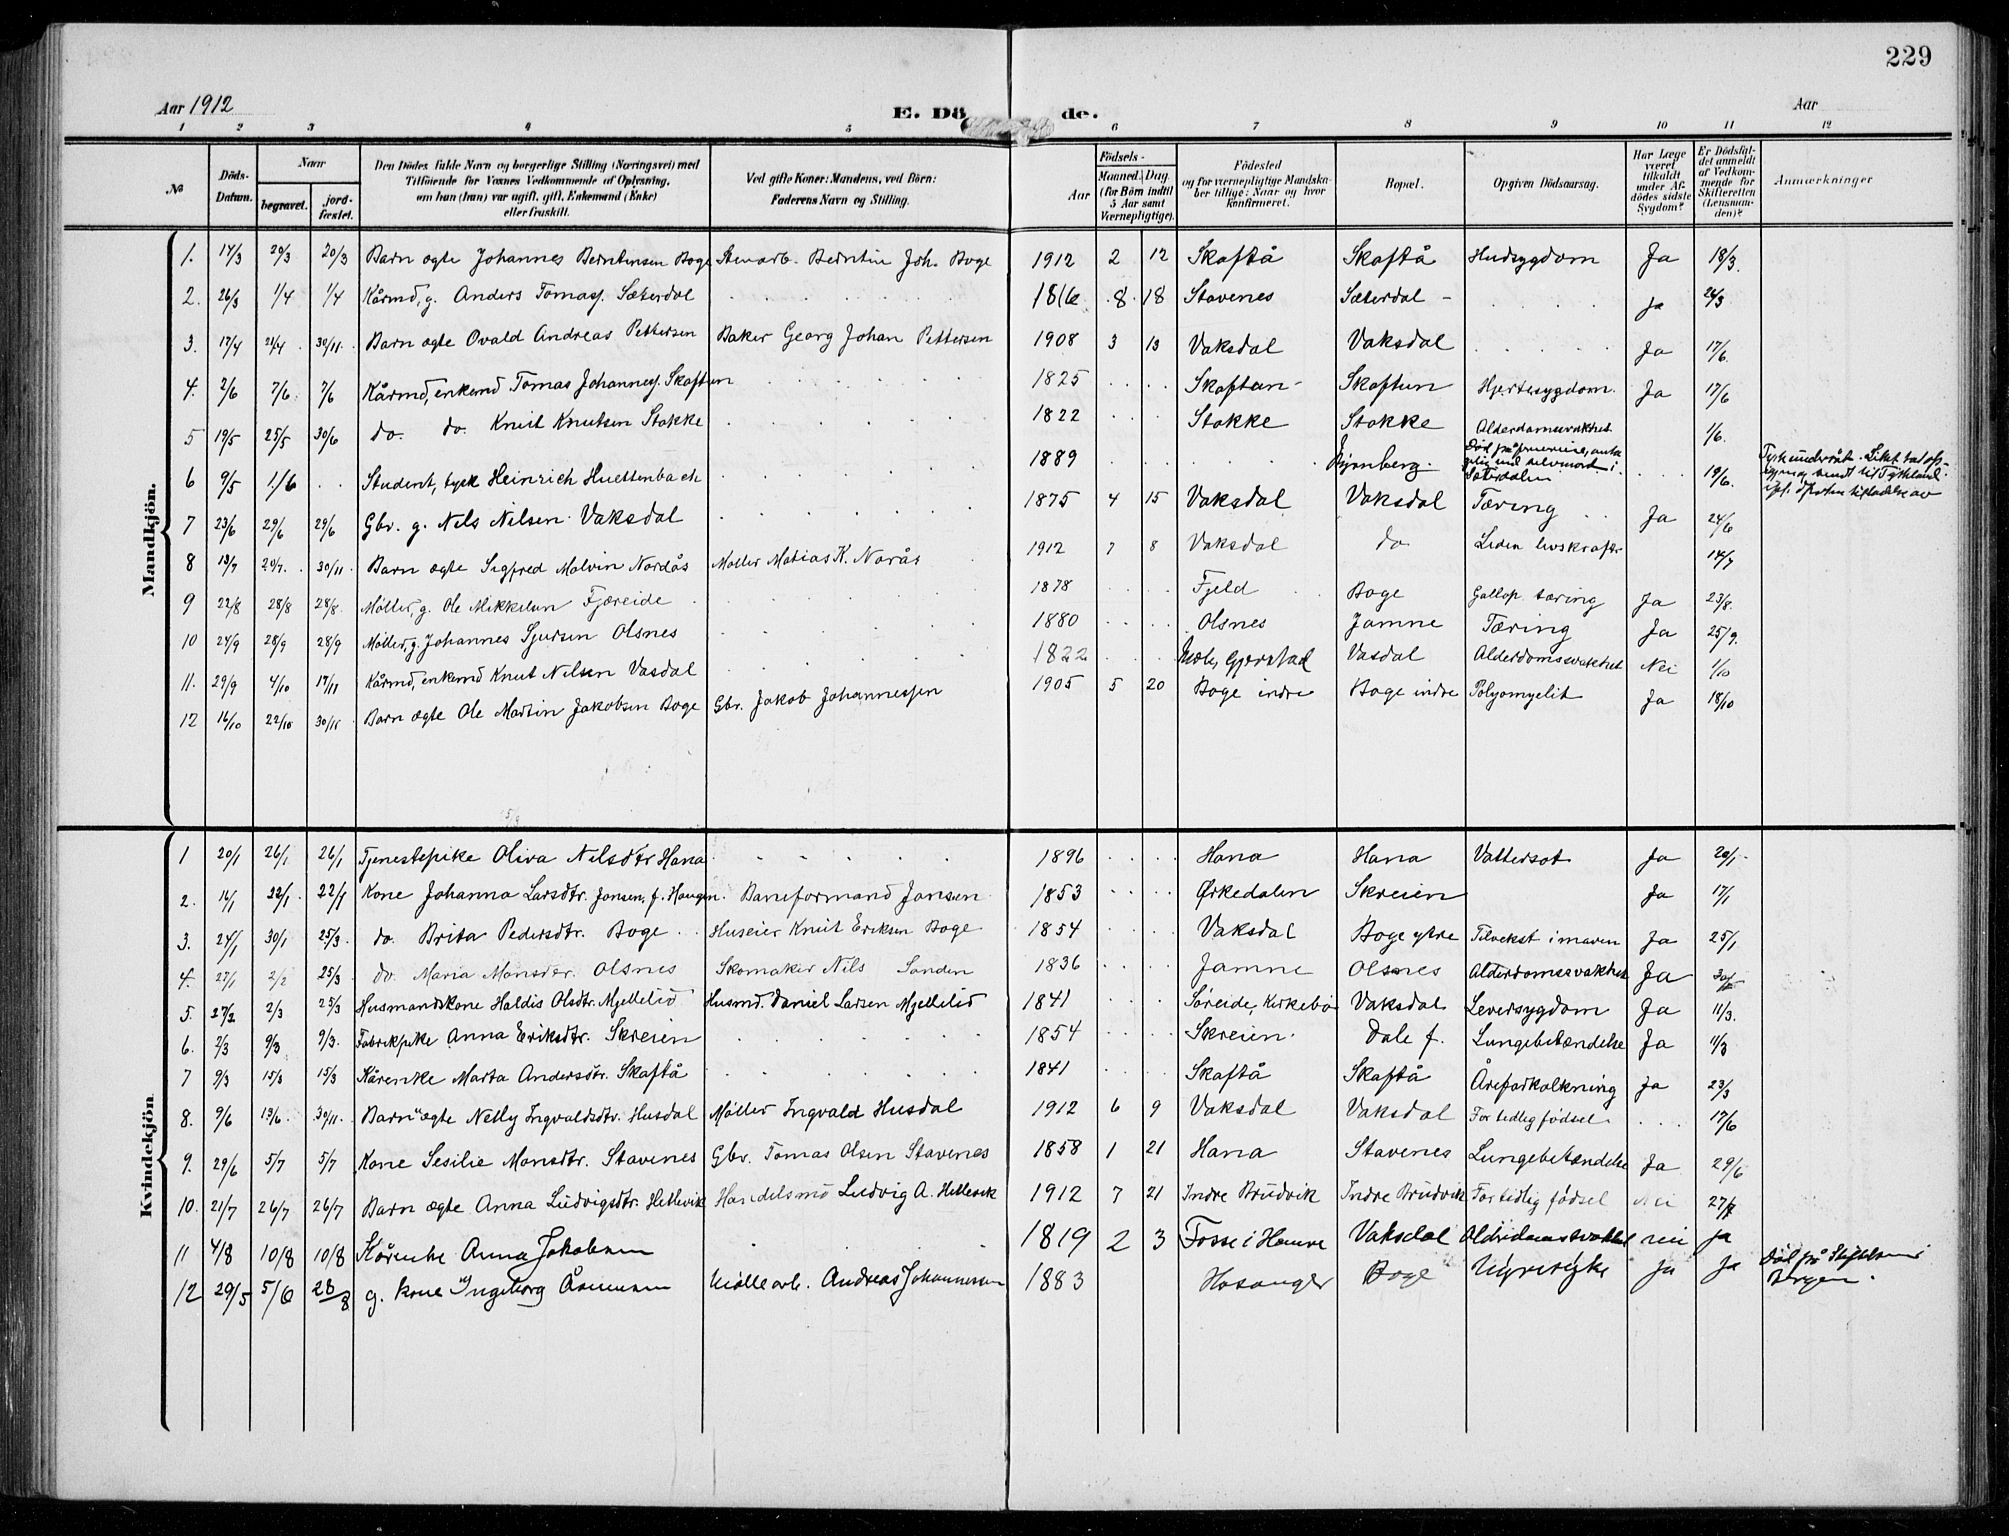 229
Aar 1912
E. Dö de.
Aar
1 2 3 4 5 6 7 8 9 10 11 12
No
Döds-Datum.
Naar
begravet.
jord-fæstet.
Den Dödes fulde Navn og borgerlige Stilling (Næringsvei) med
Tilföiende for Voxnes Vedkommende af Oplysning,
om han (hun) var ugift, gift, Enkemand (Enke)
eller fraskilt.
Ved gifte Koner: Mandens, ved Börn:
Faderens Navn og Stilling.
Födsels-
Aar
Maaned. Dag
(for Börn indtil
5 Aar samt
Værnepligtige).
Födested
og for værnepligtige Mandska-
ber tillige: Naar og hvor
konfirmeret.
Bopæl.
Opgiven Dödsaarsag.
Har Læge
været
tilkaldt
under Af-
dödes sidste
Sygdom?
Er Dödsfal-
det anmeldt
af Vedkom-
mende for
Skifteretten
(Lensman-
den)?
Anmærkninger
Mandkjön.
1. 17/3 20/3 20/3 Barn ægte Johannes Berntinsen Boge Stenarb. Berntin Joh. Boge 1912 2 12 Skaftå Skaftå Hudsygdom Ja 18/3.
2. 26/3 1/4 1/4 Kårmd, g. Anders Tomasj. Sæterdal 8 18 Stavenes Sæterdal - ja
3. 17/4 21/4 30/11. Barn ægte Ovald Andreas Pettersen Baker Georg Johan Pettersen 1908 3 13 Vaksdal Vaksdal Ja 17/6.
4. 2/6 7/6. 7/6 Kårmd, enkemd Tomas Johannesj. Skaftun 1825 Skaftun - Skaftun Hjertesygdom. Ja 17/6
5 19/5 25/5 30/6 do. do. Knut Knutsen Stokke 1822 Stokke Stokke Alderdomssvakhet 1/6.
6 9/5 1/6 Student, tysk Heinrich Huettenbach 1889 Nyrnberg. Död på 19/6. Tysk undersåt.
7 23/6 29/6 29/6 Gbr. g. Nils Nilsen Vaksdal 1875 4 15 Vaksdal Vaksdal Tæring Ja 24/6
8 13/7 20/7. 30/11. Barn ægte Sigfred Malvin Nordås Møller Matias K. Norås 1912 7 8 Vaksdal do Liden livskraft 14/7
9 22/8 28/8 28/8. Møller, g. Ole Mikkelsen Fjæreide 1878 Fjeld Boge Gallop. tæring Ja 23/8.
10 24/9 28/9 28/9 Møller, g. Johannes Sjursen Olsnes 1880 Olsnes Jamne Tæring Ja 25/9.
11. 29/9 4/10 17/11 Kårmd, enkemd Knut Nilsen Vasdal 1822 Gjerstad Vasdal Alderdomssvakhet Nei 1/10
12 16/10 22/10 30/11 Barn ægte Ole Martin Jakobsen Boge Gbr. Jakob Johannessen 1905 5 20 Boge indre Boge indre Polyomyelit Ja 18/10
Kvindekjön
1 20/1 26/1 26/1 Tjenestepike Oliva Nilsdtr Hana 1896 Hana Hana Vattersot Ja 20/1.
2. 16/1 22/1. 22/1 Kone Johanna Larsdtr. Jansen, f. Haugen. Baneformand Jansen 1853 Ørkedalen Skreien Ja 17/1
3. 24/1 30/1 25/3. do. Brita Pedersdtr. Boge Huseier Knut Eriksen Boge 1854 Vaksdal Boge ytre Tilvekst i maven Ja 25/1
4. 27/1 2/2 25/3 do. Maria Monsdtr. Olsnes Skomaker Nils Sanden 1836 Jamne Olsnes Alderdomssvakhet Ja
5. 27/2 2/3 25/3 Husmandskone Haldis Olsdtr. Mjeltelid Husmd. Daniel Larsen Mjeltelid 1841 Søreide, Kirkebø Vaksdal Leversygdom Ja 11/3.
6. 2/3 9/3 9/3. Fabrikpike Anna Eriksdtr. Skreien 1854 Skreien. Dale f. Lungebetændelse Ja 11/3
7 9/3 15/3 15/3 Kårenke Marta Andersdtr. Skaftå 1841 Skaftå Skaftå Åreforkalkning ja 23/3
8. 9/6 13/6. 30/11. Barn ægte Nelly Ingvaldsdtr. Husdal Møller Ingvald Husdal 1912 6 9 Vaksdal Vaksdal For tidlig fødsel. 17/6
9. 29/6 5/7 5/7 Kone Sesilie Monsdtr. Stavenes Gbr. Tomas Olsen Stavenes 1858 1 21 Hana Stavenes Lungebetændelse Ja 29/6
10. 21/7 26/7 26/7 Barn ægte Anna Ludvigsdtr. Hellevik Handelsmd Ludvig A. Hellevik 1912 7 21 Indre Brudvik Indre Brudvik For tidlig fødsel Nei 27/7
11 4/8 10/8 10/8 Kårenke Anna Jakobsen 1819 2 3 Fosse i Hamre Vaksdal Alderdomssvakhet nei ja
12 29/5 5/6 28/8 g. kone Ingeborg Åsmunsen Møllearb. Andreas Johannesen 1883 Hosanger Boge Nyresyke Ja Ja Död på Stiftelsen i
Bergen.